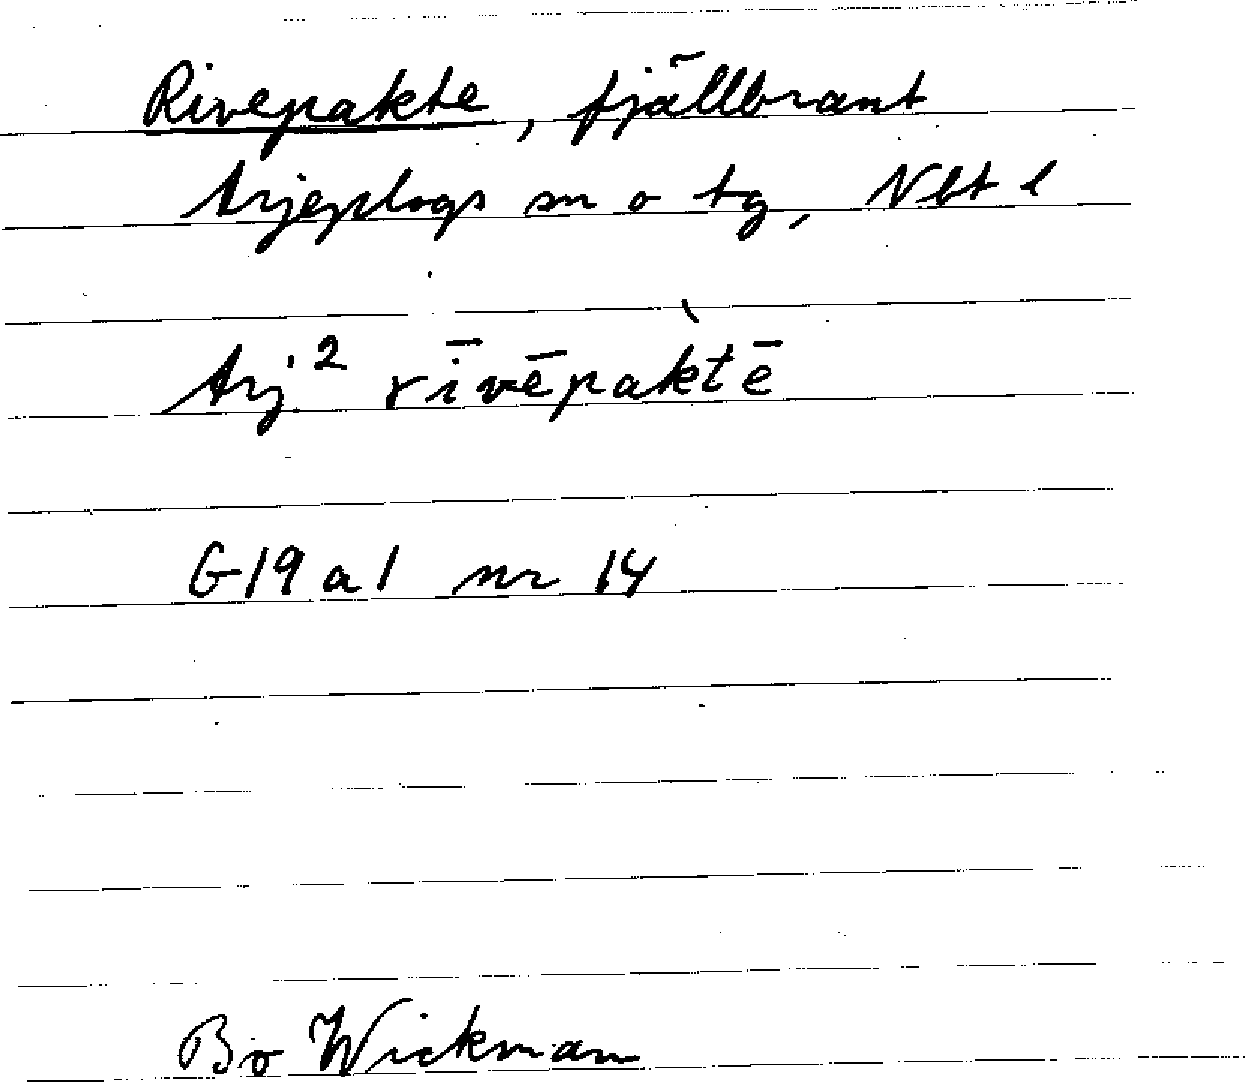 Rivepakte, fjällbrant
Arjeplogs sn o tg, Nbt l
Arj.² rīvēpàktē
G19a1 nr 14
Bo Wickman